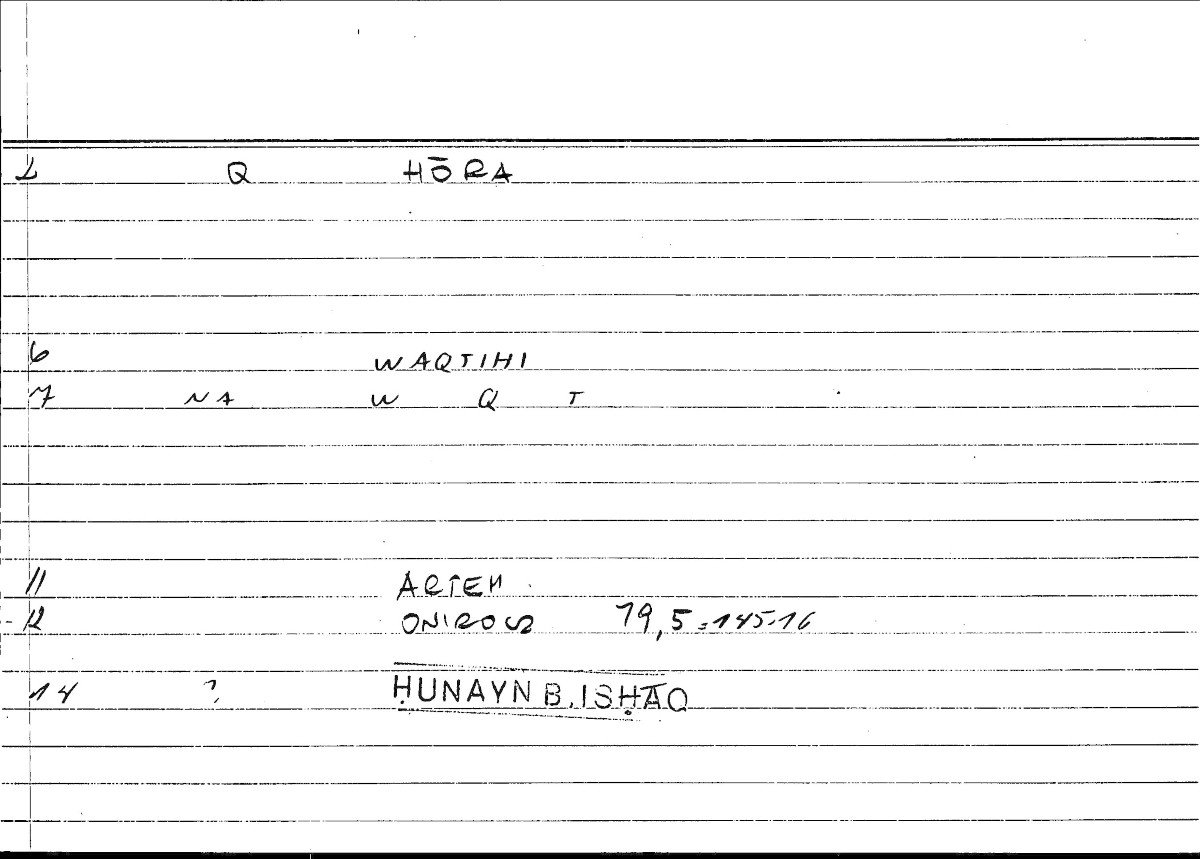 1 Q HŌRA
6 WAQTIHI
7 NA W Q T
11 ARTEM
12 ONIROCR 79,5=145.16
14 ? ḤUNAYN B. ISḤĀQ